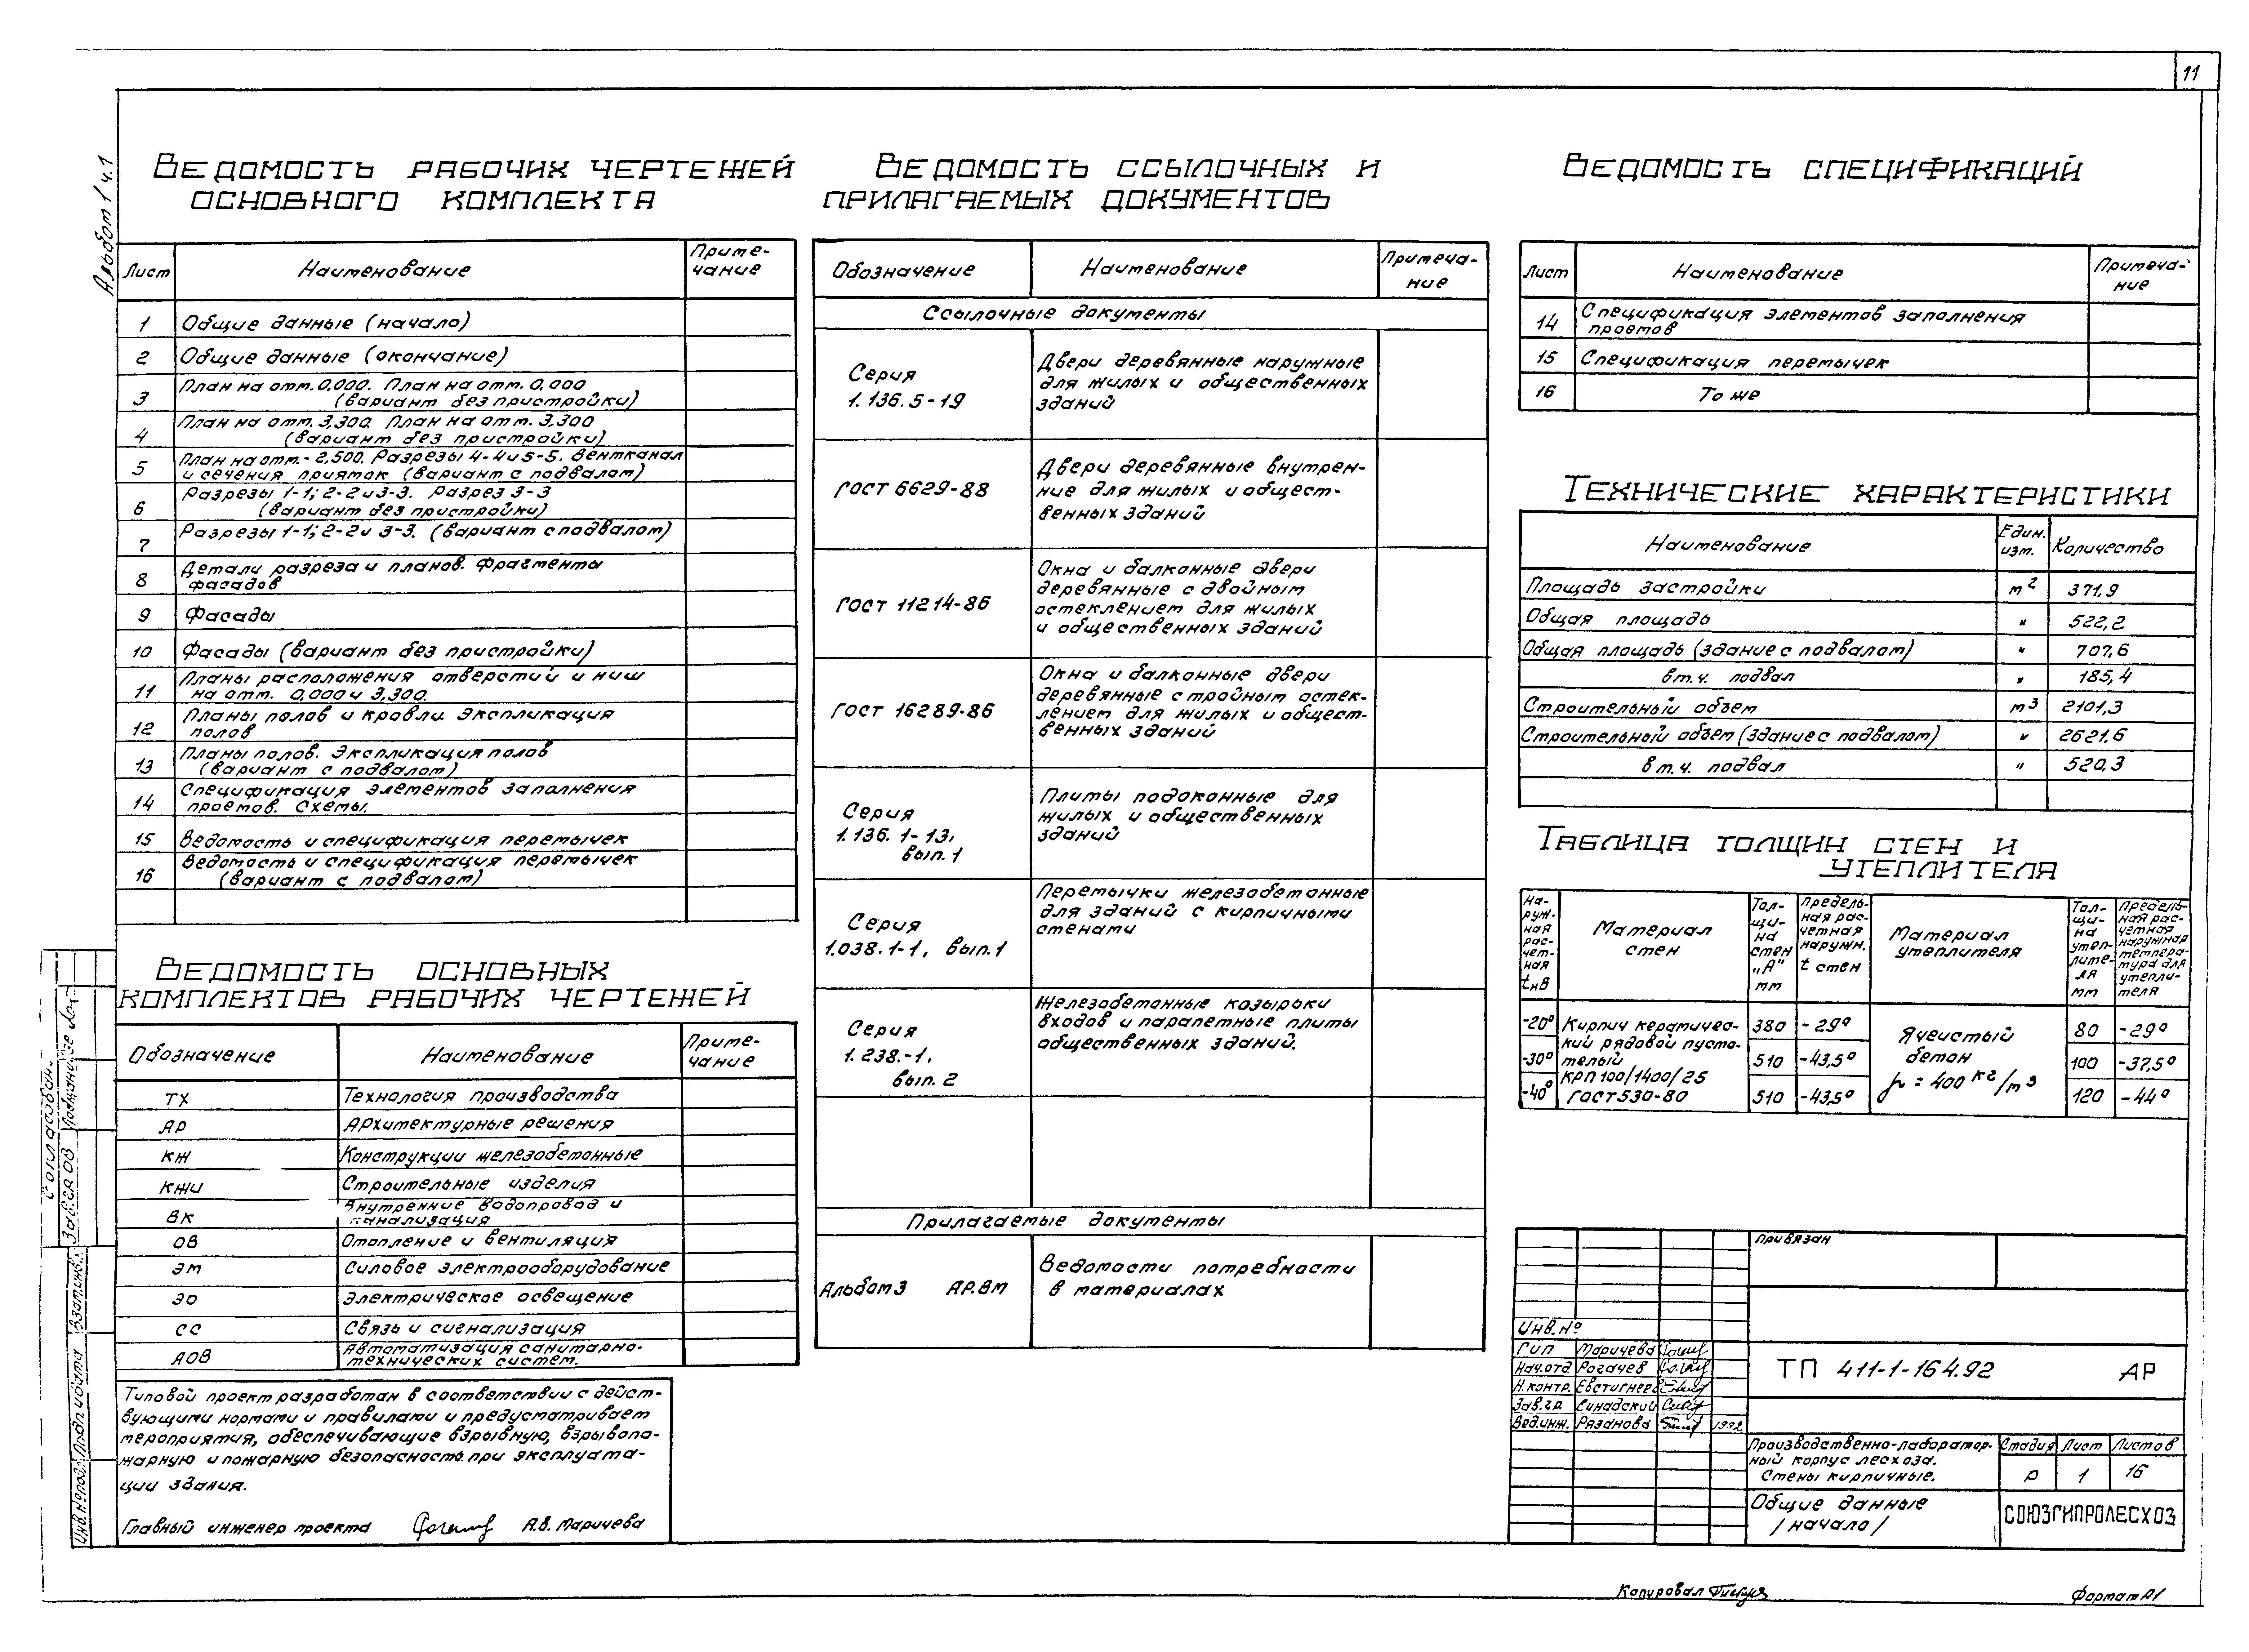 11
Альбом 1 ч.1
Ведомость рабочих чертежей
основного комплекта
Лист
Наименование
Приме-
чание
1 Общие данные (начало)
2 Общие данные (окончание)
3 План на отм. 0,000. План на отм. 0,000
(вариант без пристройки)
4 План на отм. 3,300. План на отм. 3,300
(вариант без пристройки)
5 План на отм.-2,500. Разрезы 4-4 и 5-5. Вентканал
и сечения приямок (вариант с подвалом)
6 Разрезы 1-1; 2-2 и 3-3. Разрез 3-3
(вариант без пристройки)
7 Разрезы 1-1; 2-2 и 3-3. (вариант с подвалом)
8 Детали разреза и планов. Фрагменты
фасадов
9 Фасады
10 Фасады (вариант без пристройки)
11 Планы расположения отверстий и ниш
на отм. 0,000 и 3,300.
12 Планы полов и кровли. Экспликация
полов
13 Планы полов. Экспликация полов
(вариант с подвалом)
14 Спецификация элементов заполнения
проемов. Схемы.
15 Ведомость и спецификация перемычек
16 Ведомость и спецификация перемычек
(вариант с подвалом)
Ведомость основных
комплектов рабочих чертежей
Обозначение
Наименование
Приме-
чание
ТХ Технология производства
АР Архитектурные решения
КЖ Конструкции железобетонные
КЖИ Строительные изделия
ВК Внутренние водопровод и
канализация
ОВ Отопление и вентиляция
ЭМ Силовое электрооборудование
ЭО Электрическое освещение
СС Связь и сигнализация
АОВ Автоматизация санитарно-
технических систем.
Типовой проект разработан в соответствии с дейст-
вующими нормами и правилами и предусматривает
мероприятия, обеспечивающие взрывную, взрывопо-
жарную и пожарную безопасность при эксплуата-
ции здания.
Главный инженер проекта А.В. Маричева
Ведомость ссылочных и
прилагаемых документов
Обозначение
Наименование
Примеча-
ние
Ссылочные документы
Серия
1.136.5-19
Двери деревянные наружные
для жилых и общественных
зданий
ГОСТ 6629-88
Двери деревянные внутрен-
ние для жилых и общест-
венных зданий
ГОСТ 11214-86
Окна и балконные двери
деревянные с двойным
остеклением для жилых
и общественных зданий
ГОСТ 16289-86
Окна и балконные двери
деревянные с тройным остек-
лением для жилых и общест-
венных зданий
Серия
1.136.1-13,
вып.1
Плиты подоконные для
жилых и общественных
зданий
Серия
1.038.1-1, вып.1
Перемычки железобетонные
для зданий с кирпичными
стенами
Серия
1.238.-1,
вып. 2
Железобетонные козырьки
входов и парапетные плиты
общественных зданий.
Прилагаемые документы
Альбом 3 АР.ВМ
Ведомости потребности
в материалах
Ведомость спецификаций
Лист
Наименование
Примеча-
ние
14 Спецификация элементов заполнения
проемов
15 Спецификация перемычек
16 То же
Технические характеристики
Наименование
Един.
изм.
Количество
Площадь застройки м2 371,9
Общая площадь " 522,2
Общая площадь (здание с подвалом) " 707,6
в т.ч. подвал " 185,4
Строительный объем м3 2101,3
Строительный объем (здание с подвалом) " 2621,6
в т.ч. подвал " 520,3
Таблица толщин стен и
утеплителя
На-
руж-
ная
рас-
чет-
ная
tнв
Материал
стен
Тол-
щи-
на
стен
"А"
мм
Предель-
ная рас-
четная
наружн.
t стен
Материал
утеплителя
Тол-
щи-
на
утеп-
лите-
ля
мм
Предель-
ная рас-
четная
наружная
темпера-
тура для
утепли-
теля
-20° 380 -29° 80 -29°
-30° 510 -43,5° 100 -37,5°
-40° 510 -43,5° 120 -44°
Кирпич керамичес-
кий рядовой пусто-
телый
КРП 100/1400/25
ГОСТ 530-80
Ячеистый
бетон
γ = 400 кг/м3
Привязан
Инв.№
ГИП Маричева
Нач.отд Рогачев
Н.контр. Евстигнеев
Зав.гр. Синадский
Вед.инж. Рязанова 1992
ТП 411-1-164.92 АР
Производственно-лаборатор-
ный корпус лесхоза.
Стены кирпичные.
Стадия Лист Листов
Р 1 16
Общие данные
/начало/
СОЮЗГИПРОЛЕСХОЗ
Согласован.
Зав.гр. ОВ
Взам.инв.
Подп. и дата
Инв.№ подл.
Копировал
Формат А1